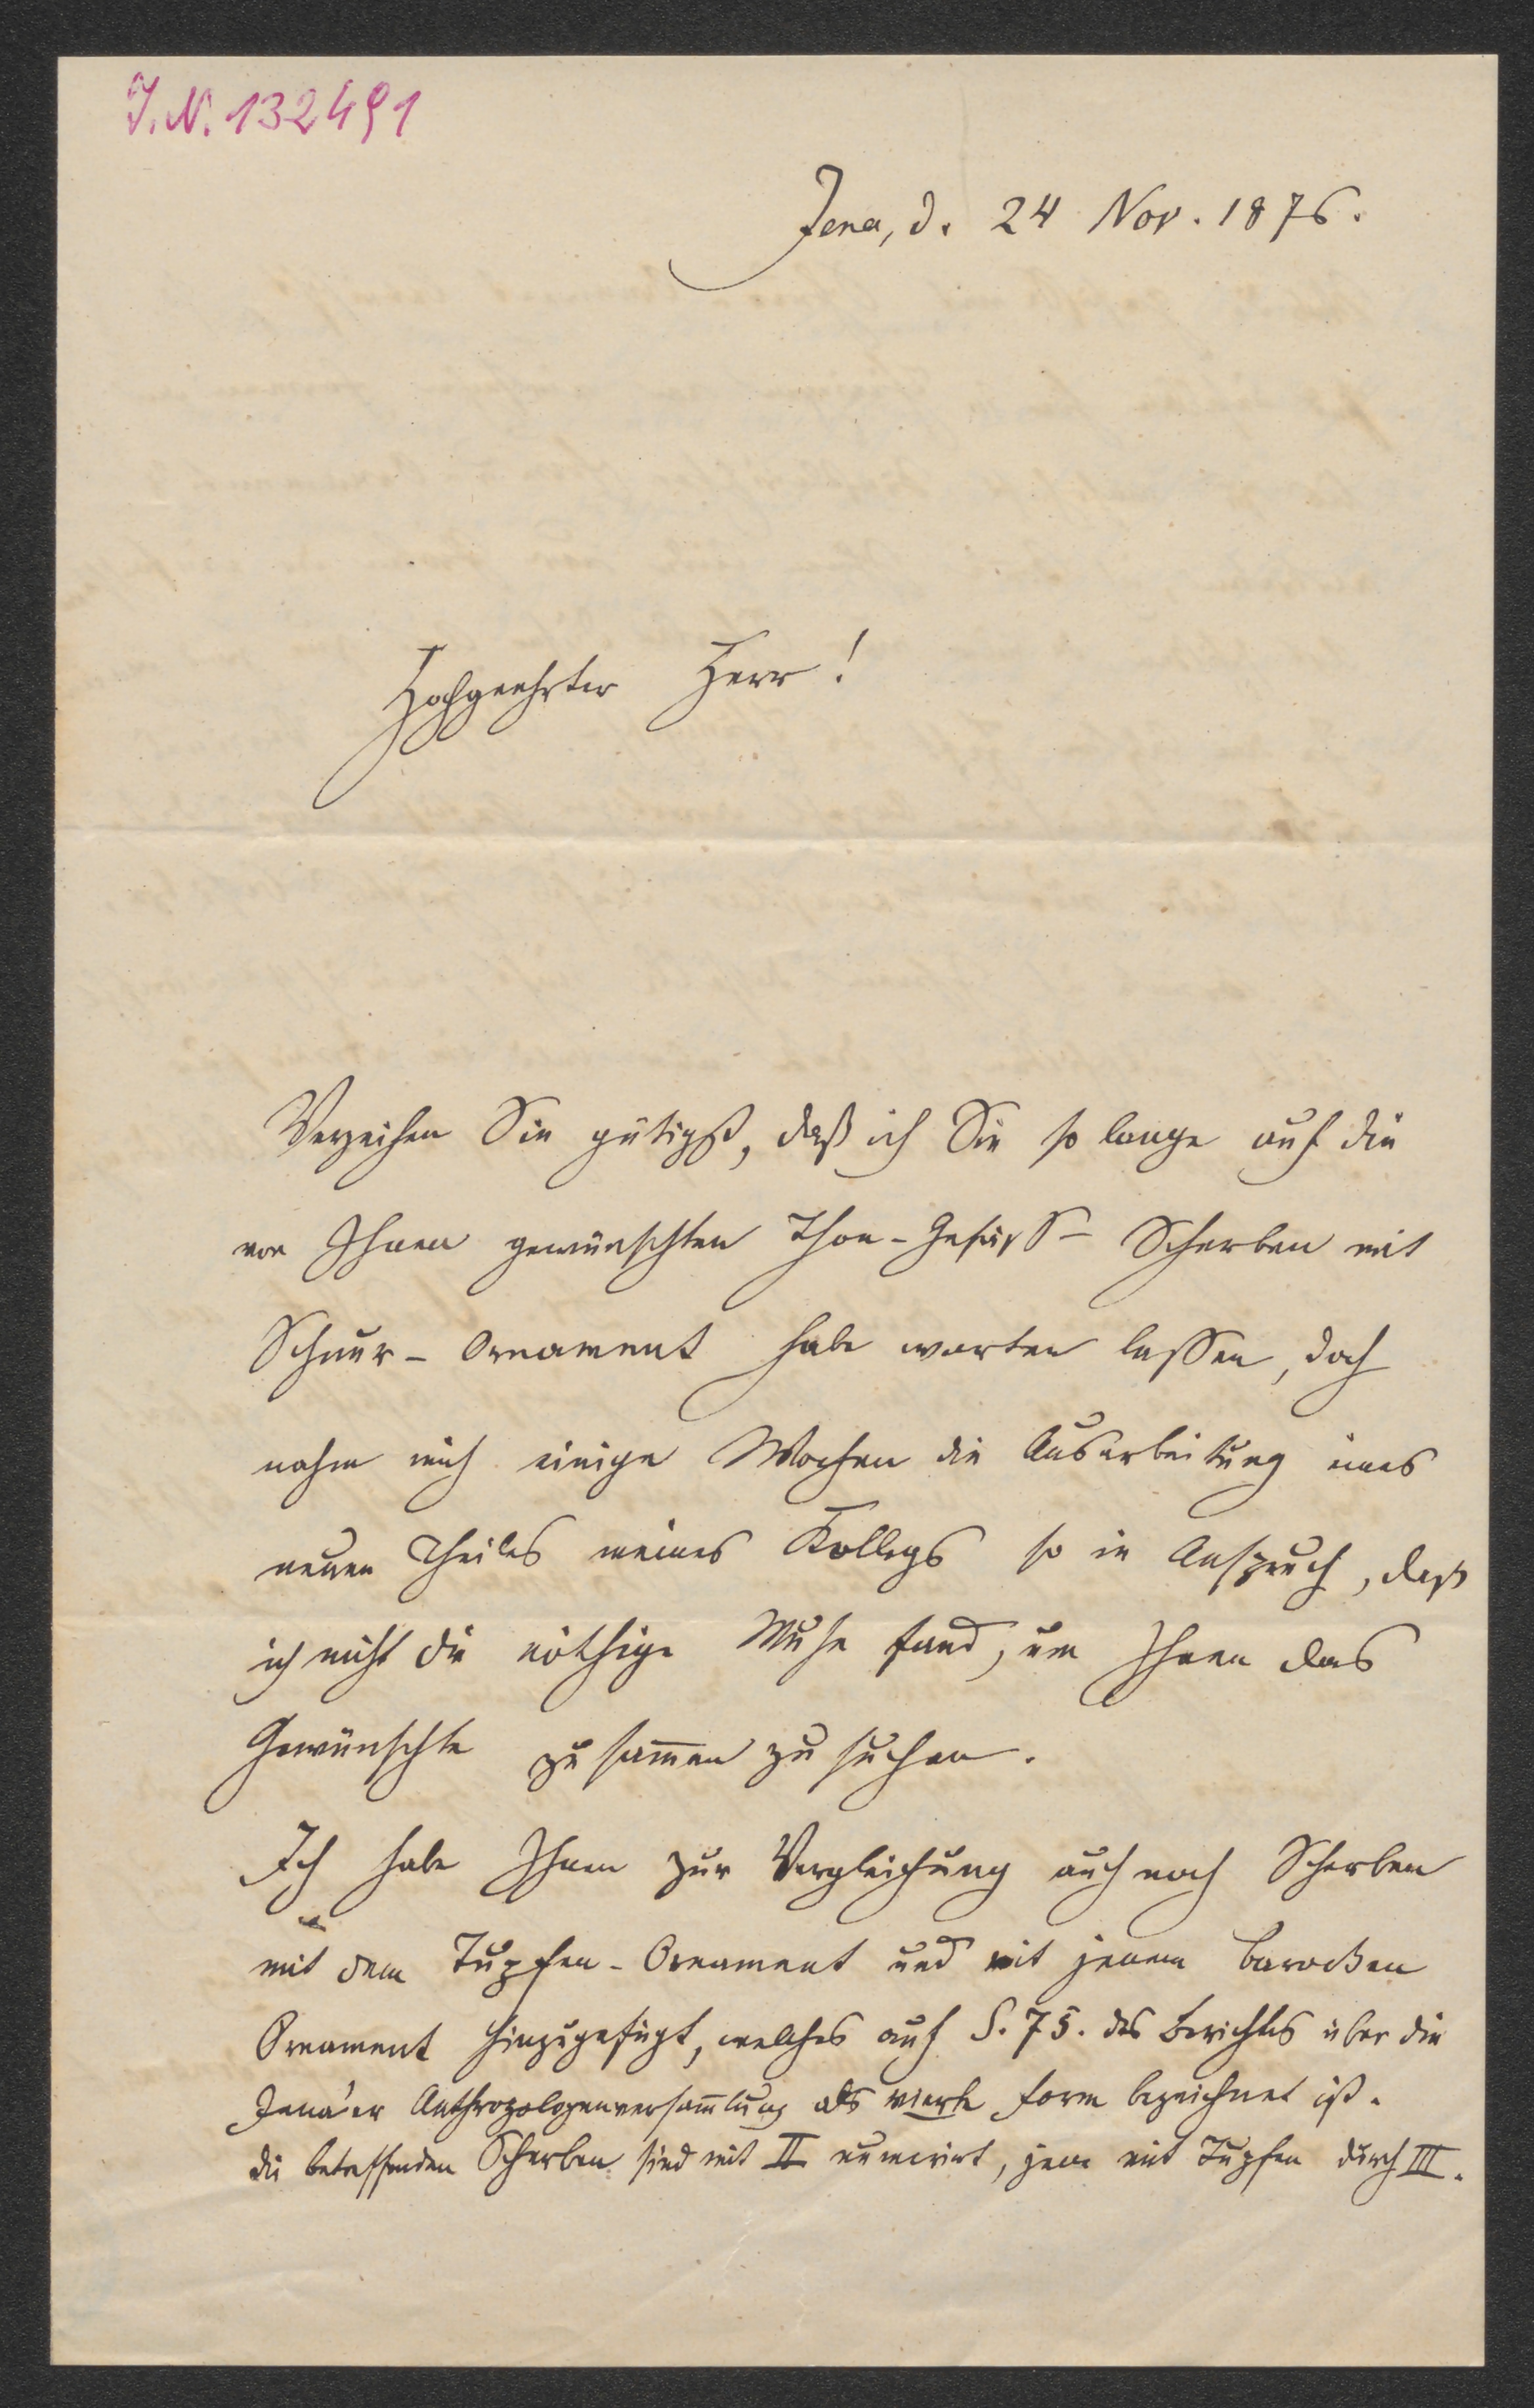 J. N. 132491
Jena, d. 24 Nov. 1876.
Hochgeehrter Herr!
Verzeihen Sie gütigst, daß ich Sie so lange auf die
von Ihnen gewünschten Thon-Gefäss-Scherben mit
Schnur-Ornament habe warten lassen, doch
nahm mich einige Wochen die Ausarbeitung eines
neuen Theiles meines Kollegs so in Anspruch, daß
ich nicht die nöthige Muße fand, um Ihnen das
Gewünschte zusam̄en zu suchen.
Ich habe Ihnen zur Vergleichung auch noch Scherben
mit dem Tupfen-Ornament und mit jenem barocken
Ornament hinzugefügt, welches auf S. 75. des Berichtes über die
Jena'er Anthropologenversam̄lung als vierte Form bezeichnet ist.
die betreffenden Scherben sind mit II numerirt, jene mit Tupfen durch III.